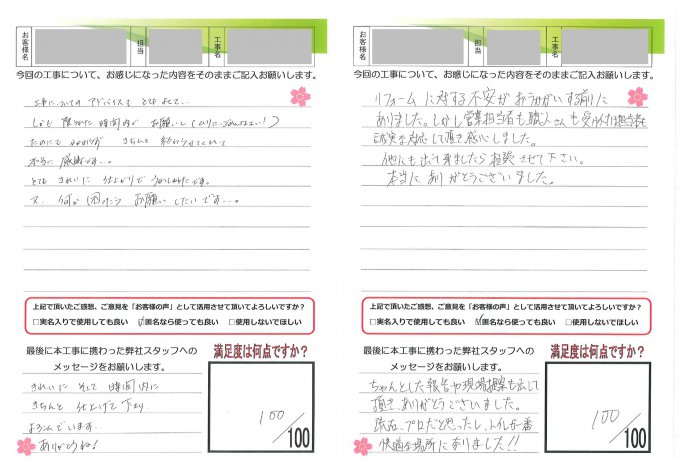 お客様名
担当
工事名
今回の工事について、お感じになった内容をそのままご記入お願いします。
工事についてのアドバイスも とてもよくて...
しかも 限られた 時間内で お願いし
たのにもかかわらず きちんと 終わらせてくれて
本当に 感謝です...。
とても きれいに 仕上がりで うれしかったです。
又、何か 困ったら お願い したいです...。
上記で頂いたご感想、ご意見を「お客様の声」として活用させて頂いてよろしいですか？
□実名入りで使用しても良い ☑匿名なら使っても良い □使用しないでほしい
最後に本工事に携わった弊社スタッフへの
メッセージをお願いします。
きれいに そして 時間内に
きちんと 仕上げて 下さり
よろこんでいます...
ありがとうね!
満足度は何点ですか？
100/100
お客様名
担当
工事名
今回の工事について、お感じになった内容をそのままご記入お願いします。
リフォームに対する不安がおうかがいする前に
ありました。しかし営業担当者も職人さんも受付担当者も
誠実な対応して頂き感心しました。
他にも出て来ましたら相談させて下さい。
本当にありがとうございました。
上記で頂いたご感想、ご意見を「お客様の声」として活用させて頂いてよろしいですか？
□実名入りで使用しても良い ☑匿名なら使っても良い □使用しないでほしい
最後に本工事に携わった弊社スタッフへの
メッセージをお願いします。
ちゃんとした報告や現場提案も出して
頂き、ありがとうございました。
流石、プロだと思ったし、トイレが一番
快適な場所になりました!!
満足度は何点ですか？
100/100